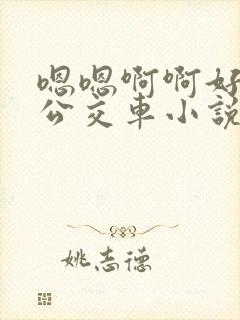 嗯嗯啊啊好
公交車小說
姚志德